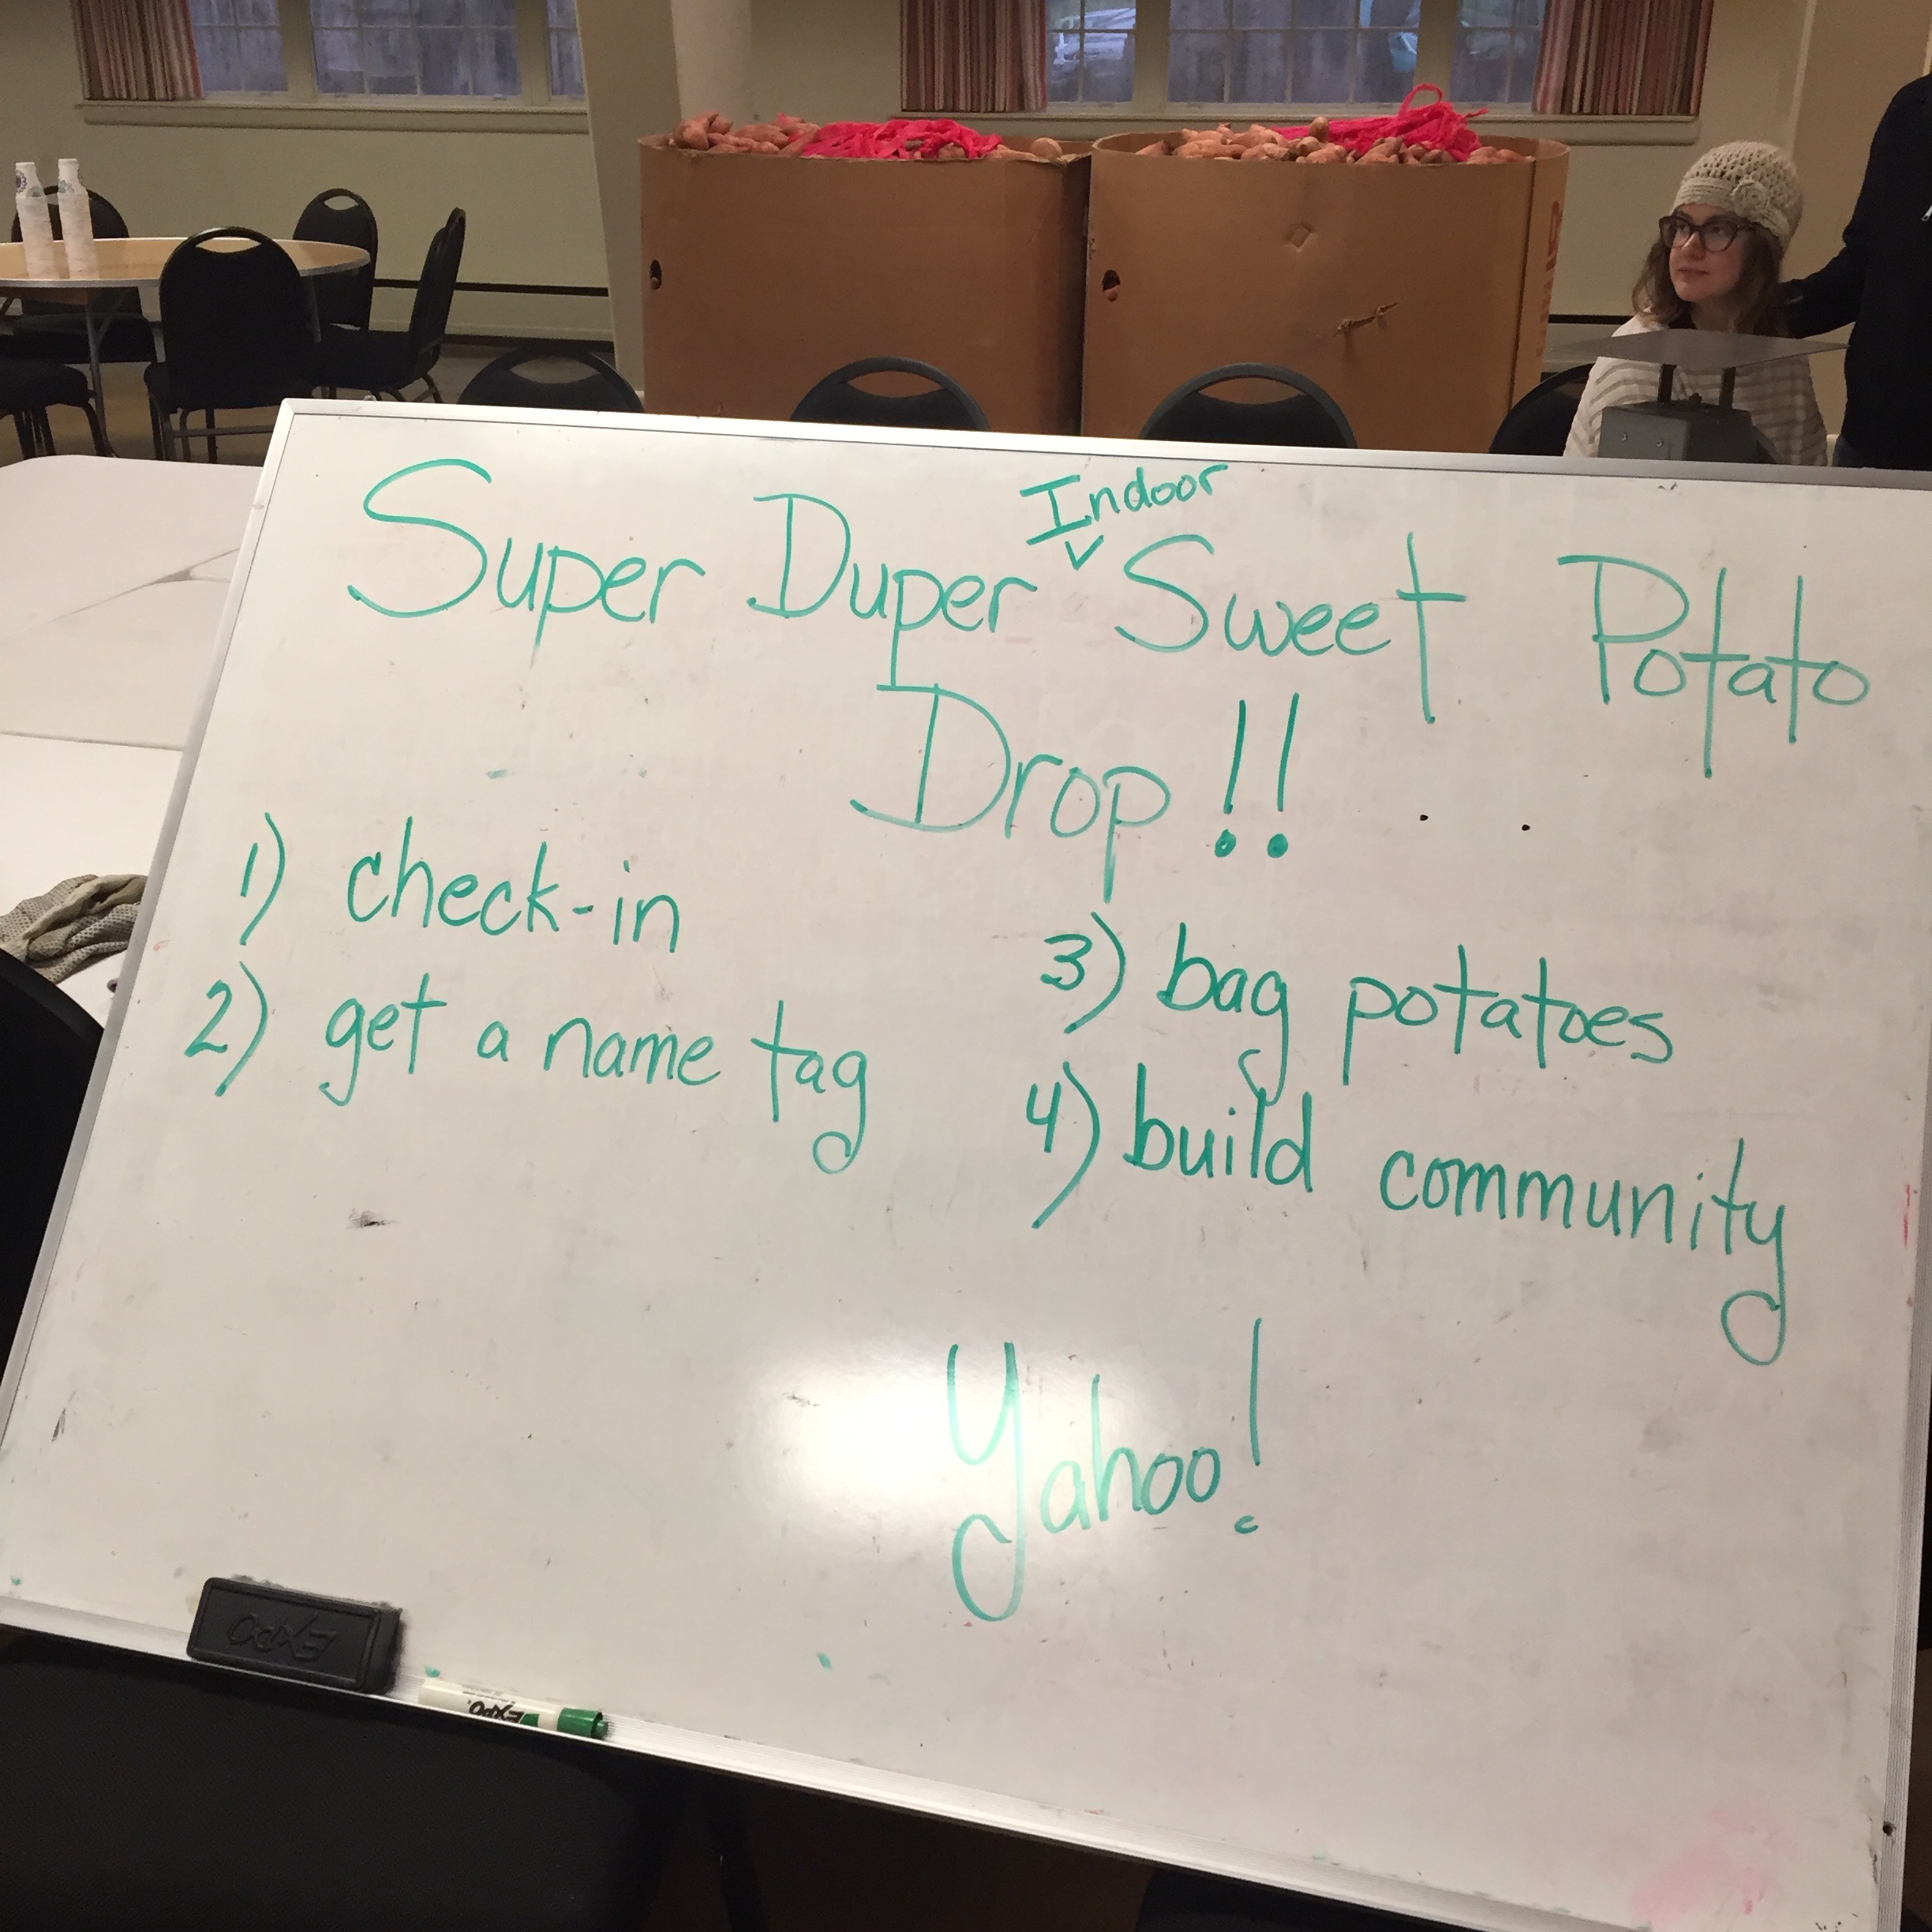 Super Duper Indoor Sweet Potato
Drop!!
1) check-in
2) get a name tag
3) bag potatoes
4) build community
Yahoo!
EXPO
EXPO